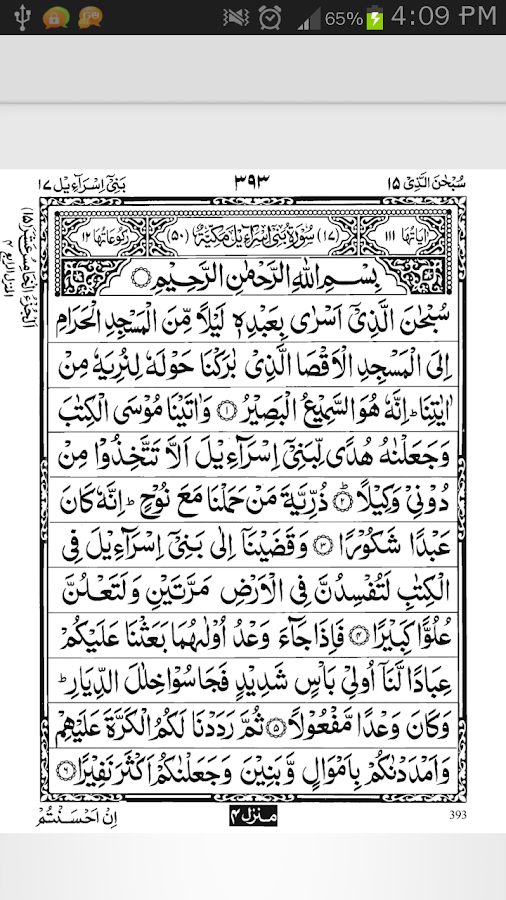 65% 4:09 PM
سُبْحٰنَ الَّذِیْۤ ۱۵
۳۹۳
بَنِیْۤ اِسْرَآءِیْل ۱۷
اٰیَاتُهَا ۱۱۱
(۱۷) سُوْرَةُ بَنِیْۤ اِسْرَآءِیْلَ مَكِّیَّةٌ (۵۰)
رُكُوْعَاتُهَا ۱۲
بِسْمِ اللّٰهِ الرَّحْمٰنِ الرَّحِیْمِ
سُبْحٰنَ الَّذِیْۤ اَسْرٰی بِعَبْدِهٖ لَیْلًا مِّنَ الْمَسْجِدِ الْحَرَامِ
اِلَی الْمَسْجِدِ الْاَقْصَا الَّذِیْ بٰرَكْنَا حَوْلَهٗ لِنُرِیَهٗ مِنْ
اٰیٰتِنَا ؕ اِنَّهٗ هُوَ السَّمِیْعُ الْبَصِیْرُ ۱ وَاٰتَیْنَا مُوْسَی الْكِتٰبَ
وَجَعَلْنٰهُ هُدًی لِّبَنِیْۤ اِسْرَآءِیْلَ اَلَّا تَتَّخِذُوْا مِنْ
دُوْنِیْ وَكِیْلًا ۲ ذُرِّیَّةَ مَنْ حَمَلْنَا مَعَ نُوْحٍ ؕ اِنَّهٗ كَانَ
عَبْدًا شَكُوْرًا ۳ وَقَضَیْنَاۤ اِلٰی بَنِیْۤ اِسْرَآءِیْلَ فِی
الْكِتٰبِ لَتُفْسِدُنَّ فِی الْاَرْضِ مَرَّتَیْنِ وَلَتَعْلُنَّ
عُلُوًّا كَبِیْرًا ۴ فَاِذَا جَآءَ وَعْدُ اُوْلٰىهُمَا بَعَثْنَا عَلَیْكُمْ
عِبَادًا لَّنَاۤ اُولِیْ بَاْسٍ شَدِیْدٍ فَجَاسُوْا خِلٰلَ الدِّیَارِ ؕ
وَكَانَ وَعْدًا مَّفْعُوْلًا ۵ ثُمَّ رَدَدْنَا لَكُمُ الْكَرَّةَ عَلَیْهِمْ
وَاَمْدَدْنٰكُمْ بِاَمْوَالٍ وَّبَنِیْنَ وَجَعَلْنٰكُمْ اَكْثَرَ نَفِیْرًا ۶
اَلْجُزْءُ الْخَامِسُ عَشَرَ (۱۵)
المنزل الرابع ۴
393
منزل ۴
اِنْ اَحْسَنْتُمْ